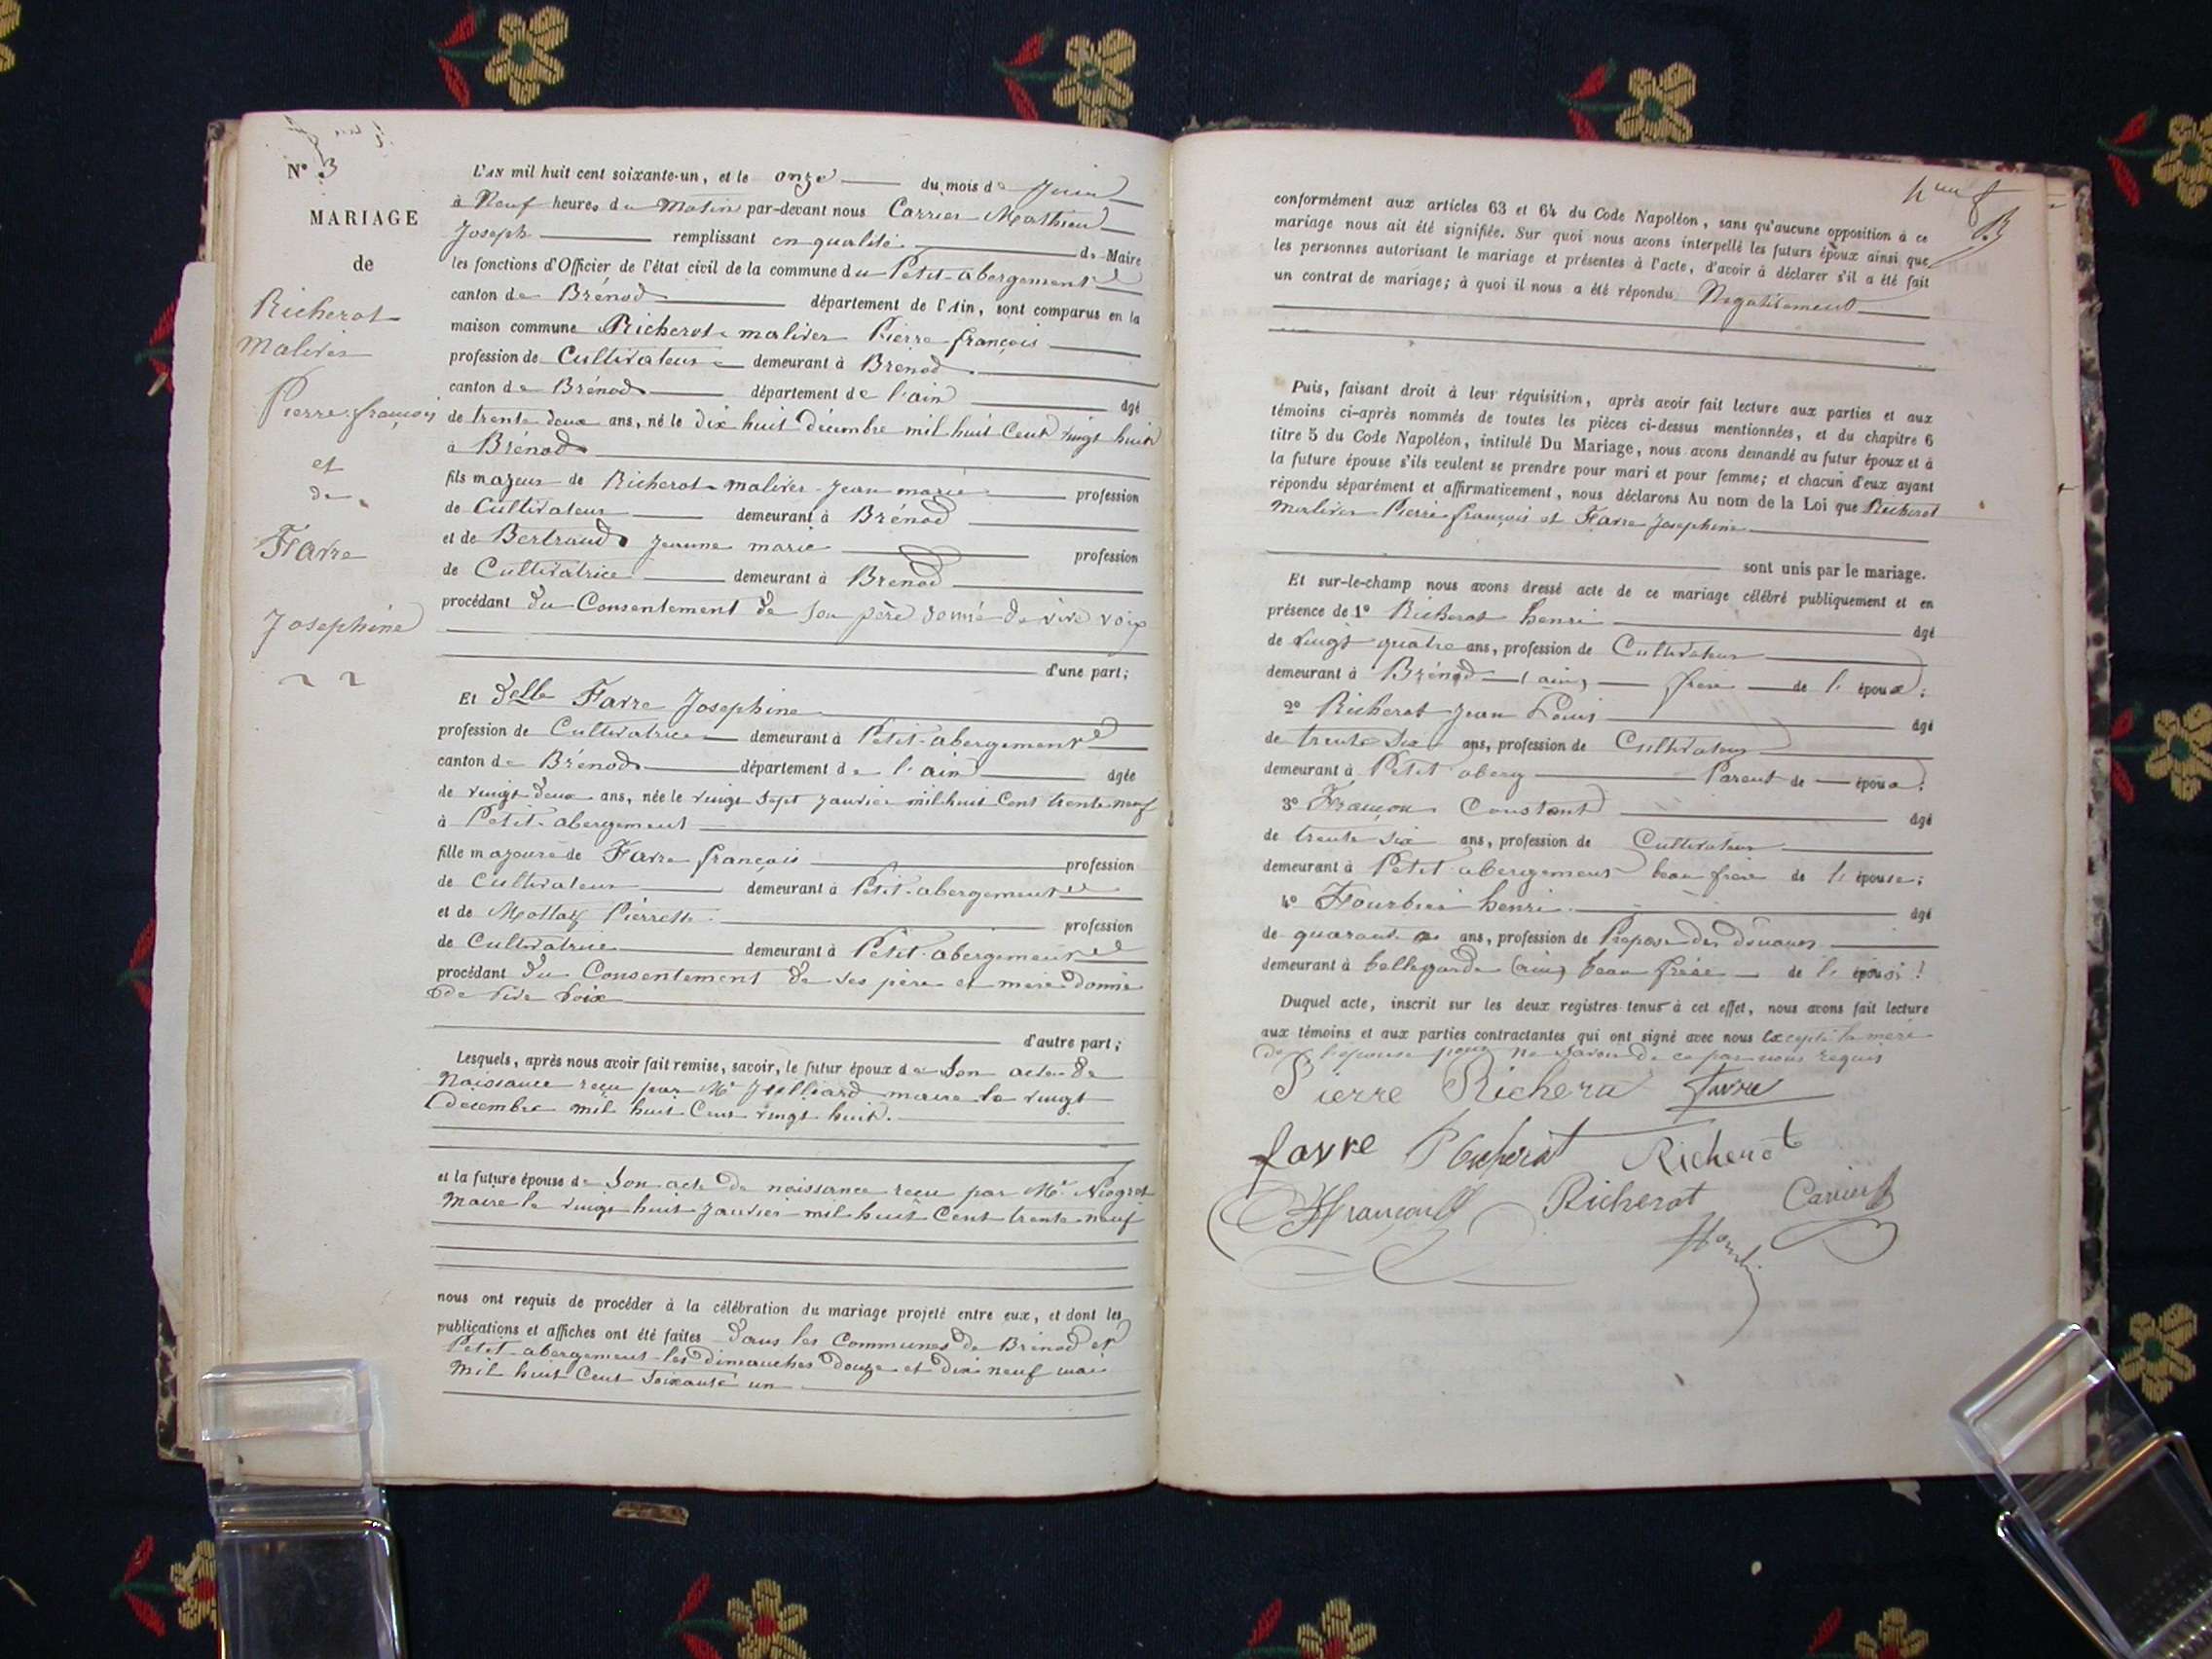 N° 3
MARIAGE
de
Richerot
Maliver
Pierre françois
et
de
Favre
Josephine
L'AN mil huit cent soixante-un, et le onze du mois de Juin
à Neuf heures du Matin par-devant nous Carrier Mathieu
Joseph remplissant en qualité de Maire
les fonctions d'Officier de l'état civil de la commune du Petit-abergement
canton de Brénod département de l'Ain, sont comparus en la
maison commune Richerot-maliver Pierre françois
profession de Cultivateur demeurant à Brénod
canton de Brénod département de l'ain âgé
de trente deux ans, né le dix huit décembre mil huit Cent vingt huit
à Brénod
fils majeur de Richerot-maliver Jean marie profession
de Cultivateur demeurant à Brénod
et de Bertrand Jeanne marie profession
de Cultivatrice demeurant à Brénod
procédant du Consentement de son père donné de vive voix
d'une part;
Et delle Favre Josephine
profession de Cultivatrice demeurant à Petit-abergement
canton de Brénod département de l'ain âgée
de vingt deux ans, née le vingt sept janvier mil huit Cent trente neuf
à Petit-abergement
fille majeure de Favre françois profession
de Cultivateur demeurant à Petit-abergement
et de Mottaz Pierrette profession
de Cultivatrice demeurant à Petit-abergement
procédant du Consentement de ses père et mère donné
de vive voix
d'autre part;
Lesquels, après nous avoir fait remise, savoir, le futur époux de Son acte de
Naissance reçu par Mr Juilliard maire le vingt
décembre mil huit Cent vingt huit.
et la future épouse de Son acte de naissance reçu par Mr
Maire le vingt huit Janvier mil huit Cent trente neuf
nous ont requis de procéder à la célébration du mariage projeté entre eux, et dont les
publications et affiches ont été faites dans les Communes de Brénod et
Petit-abergement les dimanches douze et dix neuf mai
mil huit Cent soixante un
conformément aux articles 63 et 64 du Code Napoléon, sans qu'aucune opposition à ce
mariage nous ait été signifiée. Sur quoi nous avons interpellé les futurs époux ainsi que
les personnes autorisant le mariage et présentes à l'acte, d'avoir à déclarer s'il a été fait
un contrat de mariage; à quoi il nous a été répondu Négativement
Puis, faisant droit à leur réquisition, après avoir fait lecture aux parties et aux
témoins ci-après nommés de toutes les pièces ci-dessus mentionnées, et du chapitre 6
titre 5 du Code Napoléon, intitulé Du Mariage, nous avons demandé au futur époux et à
la future épouse s'ils veulent se prendre pour mari et pour femme; et chacun d'eux ayant
répondu séparément et affirmativement, nous déclarons Au nom de la Loi que Richerot
Maliver Pierre françois et Favre Josephine
sont unis par le mariage.
Et sur-le-champ nous avons dressé acte de ce mariage célébré publiquement et en
présence de 1° Richerot henri âgé
de vingt quatre ans, profession de Cultivateur
demeurant à Brénod (ain) frère de l'époux;
2° Richerot Jean Louis âgé
de trente six ans, profession de Cultivateur
demeurant à Petit aberg Parent de époux;
3° Françon Constant âgé
de trente six ans, profession de Cultivateur
demeurant à Petit abergement beau frère de l'épouse;
4° henri âgé
de quarante ans, profession de Préposé des douanes
demeurant à bellegarde (ain) beau frère de l'
Duquel acte, inscrit sur les deux registres tenus à cet effet, nous avons fait lecture
aux témoins et aux parties contractantes qui ont signé avec nous excepté la mère
de l'épouse pour ne savoir de ce par nous requis
Pierre Richera favre
favre Richerot Richerot
Françon Richerot Carrier